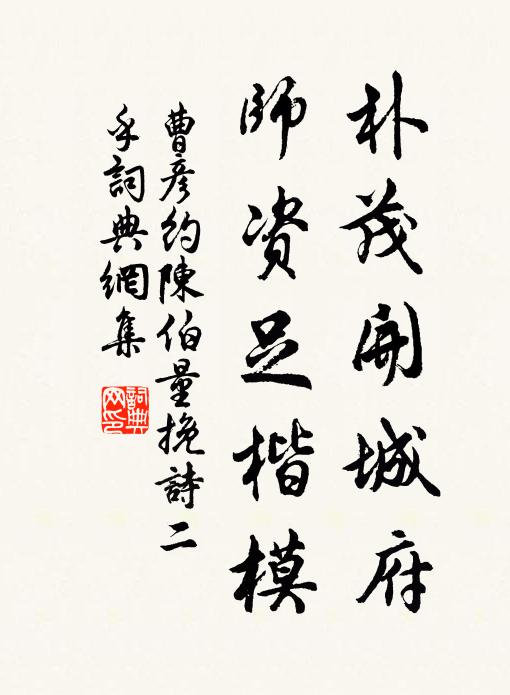 朴茂開城府
師資足楷模
曹彥約陳伯量挽詩二
手詞典網集
詞典網印